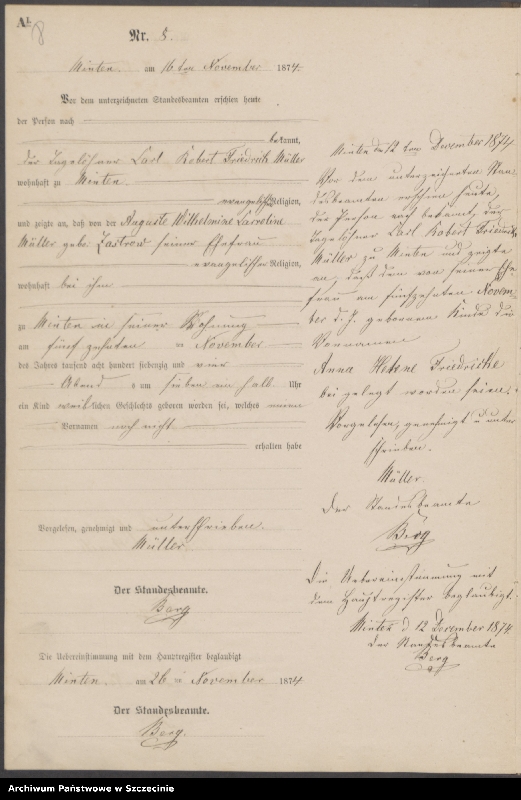 A1.
8
Nr. 8.
Minten am 16 ten November 1874
Vor dem unterzeichneten Standesbeamten erschien heute
der Person nach
bekannt,
der Tagelöhner Carl Robert Friedrich Müller
wohnhaft zu Minten
evangelischer Religion,
und zeigte an, daß von der Auguste Wilhelmine Caroline
Müller geb. Zastrow seiner Ehefrau
evangelischer Religion,
wohnhaft bei ihm
zu Minten in seiner Wohnung
am fünfzehnten November
des Jahres tausend acht hundert siebenzig und vier
Abend s um sieben ein halb Uhr
ein Kind weiblichen Geschlechts geboren worden sei, welches
Vornamen noch nicht
erhalten habe
Vorgelesen, genehmigt und unterschrieben.
Müller
Der Standesbeamte.
Berg
Die Uebereinstimmung mit dem Hauptregister beglaubigt
Minten am 26 November 1874
Der Standesbeamte.
Berg.
Minten den 12 ten December 1874
Vor dem unterzeichneten Stan-
desbeamten erschien heute,
der Person nach bekannt, der
Tagelöhner Carl Robert Friedrich
Müller zu Minten und zeigte
an, daß dem von seiner Ehe-
frau am fünfzehnten Novem-
ber d. J. geborenen Kinde die
Vornamen
Anna Helene Friedricke
beigelegt worden seien.
Vorgelesen, genehmigt u unter
schrieben.
Müller.
Der Standesbeamte
Berg
Die Uebereinstimmung mit
dem Hauptregister beglaubigt.
Minten d 12 December 1874
Der Standesbeamte
Berg
Archiwum Państwowe w Szczecinie